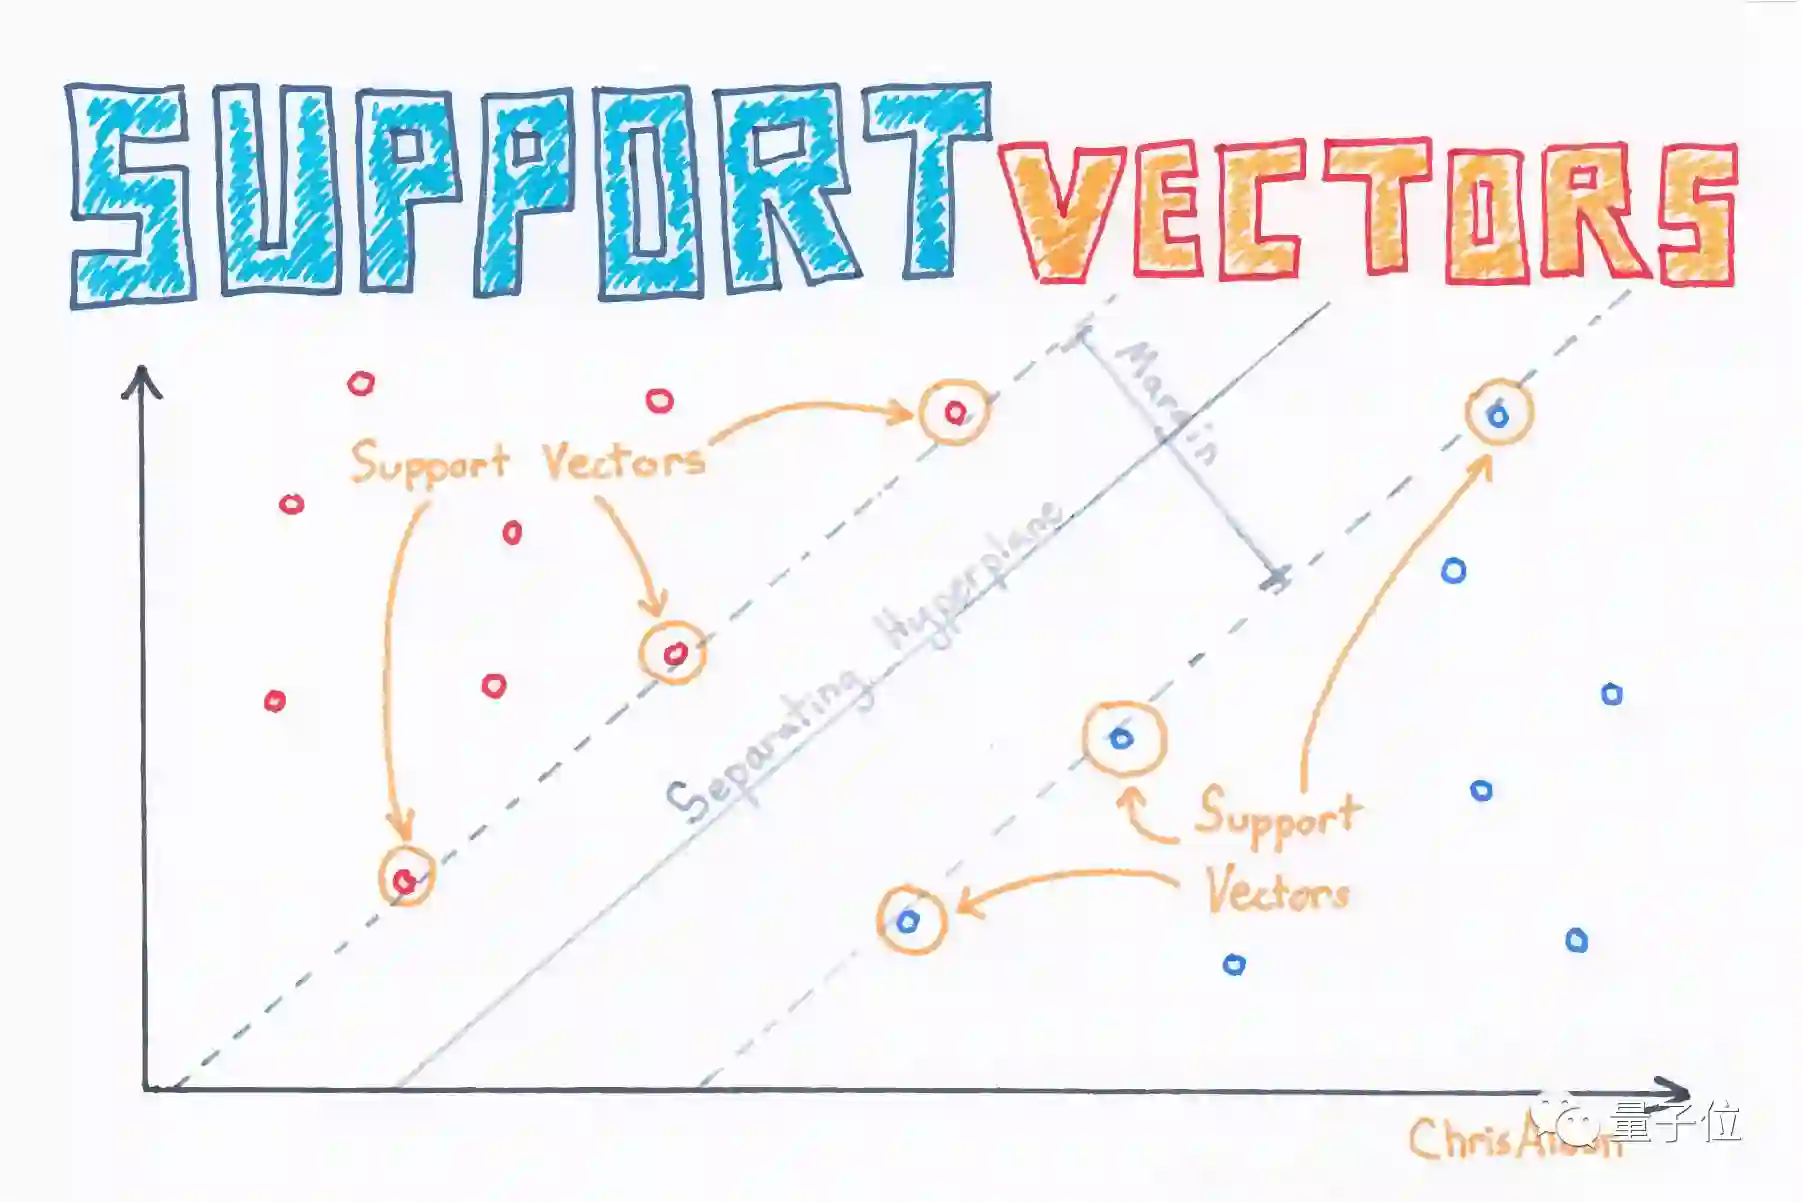 SUPPORT VECTORS
Margin
Support Vectors
Separating Hyperplane
Support
Vectors
ChrisAlbon
量子位